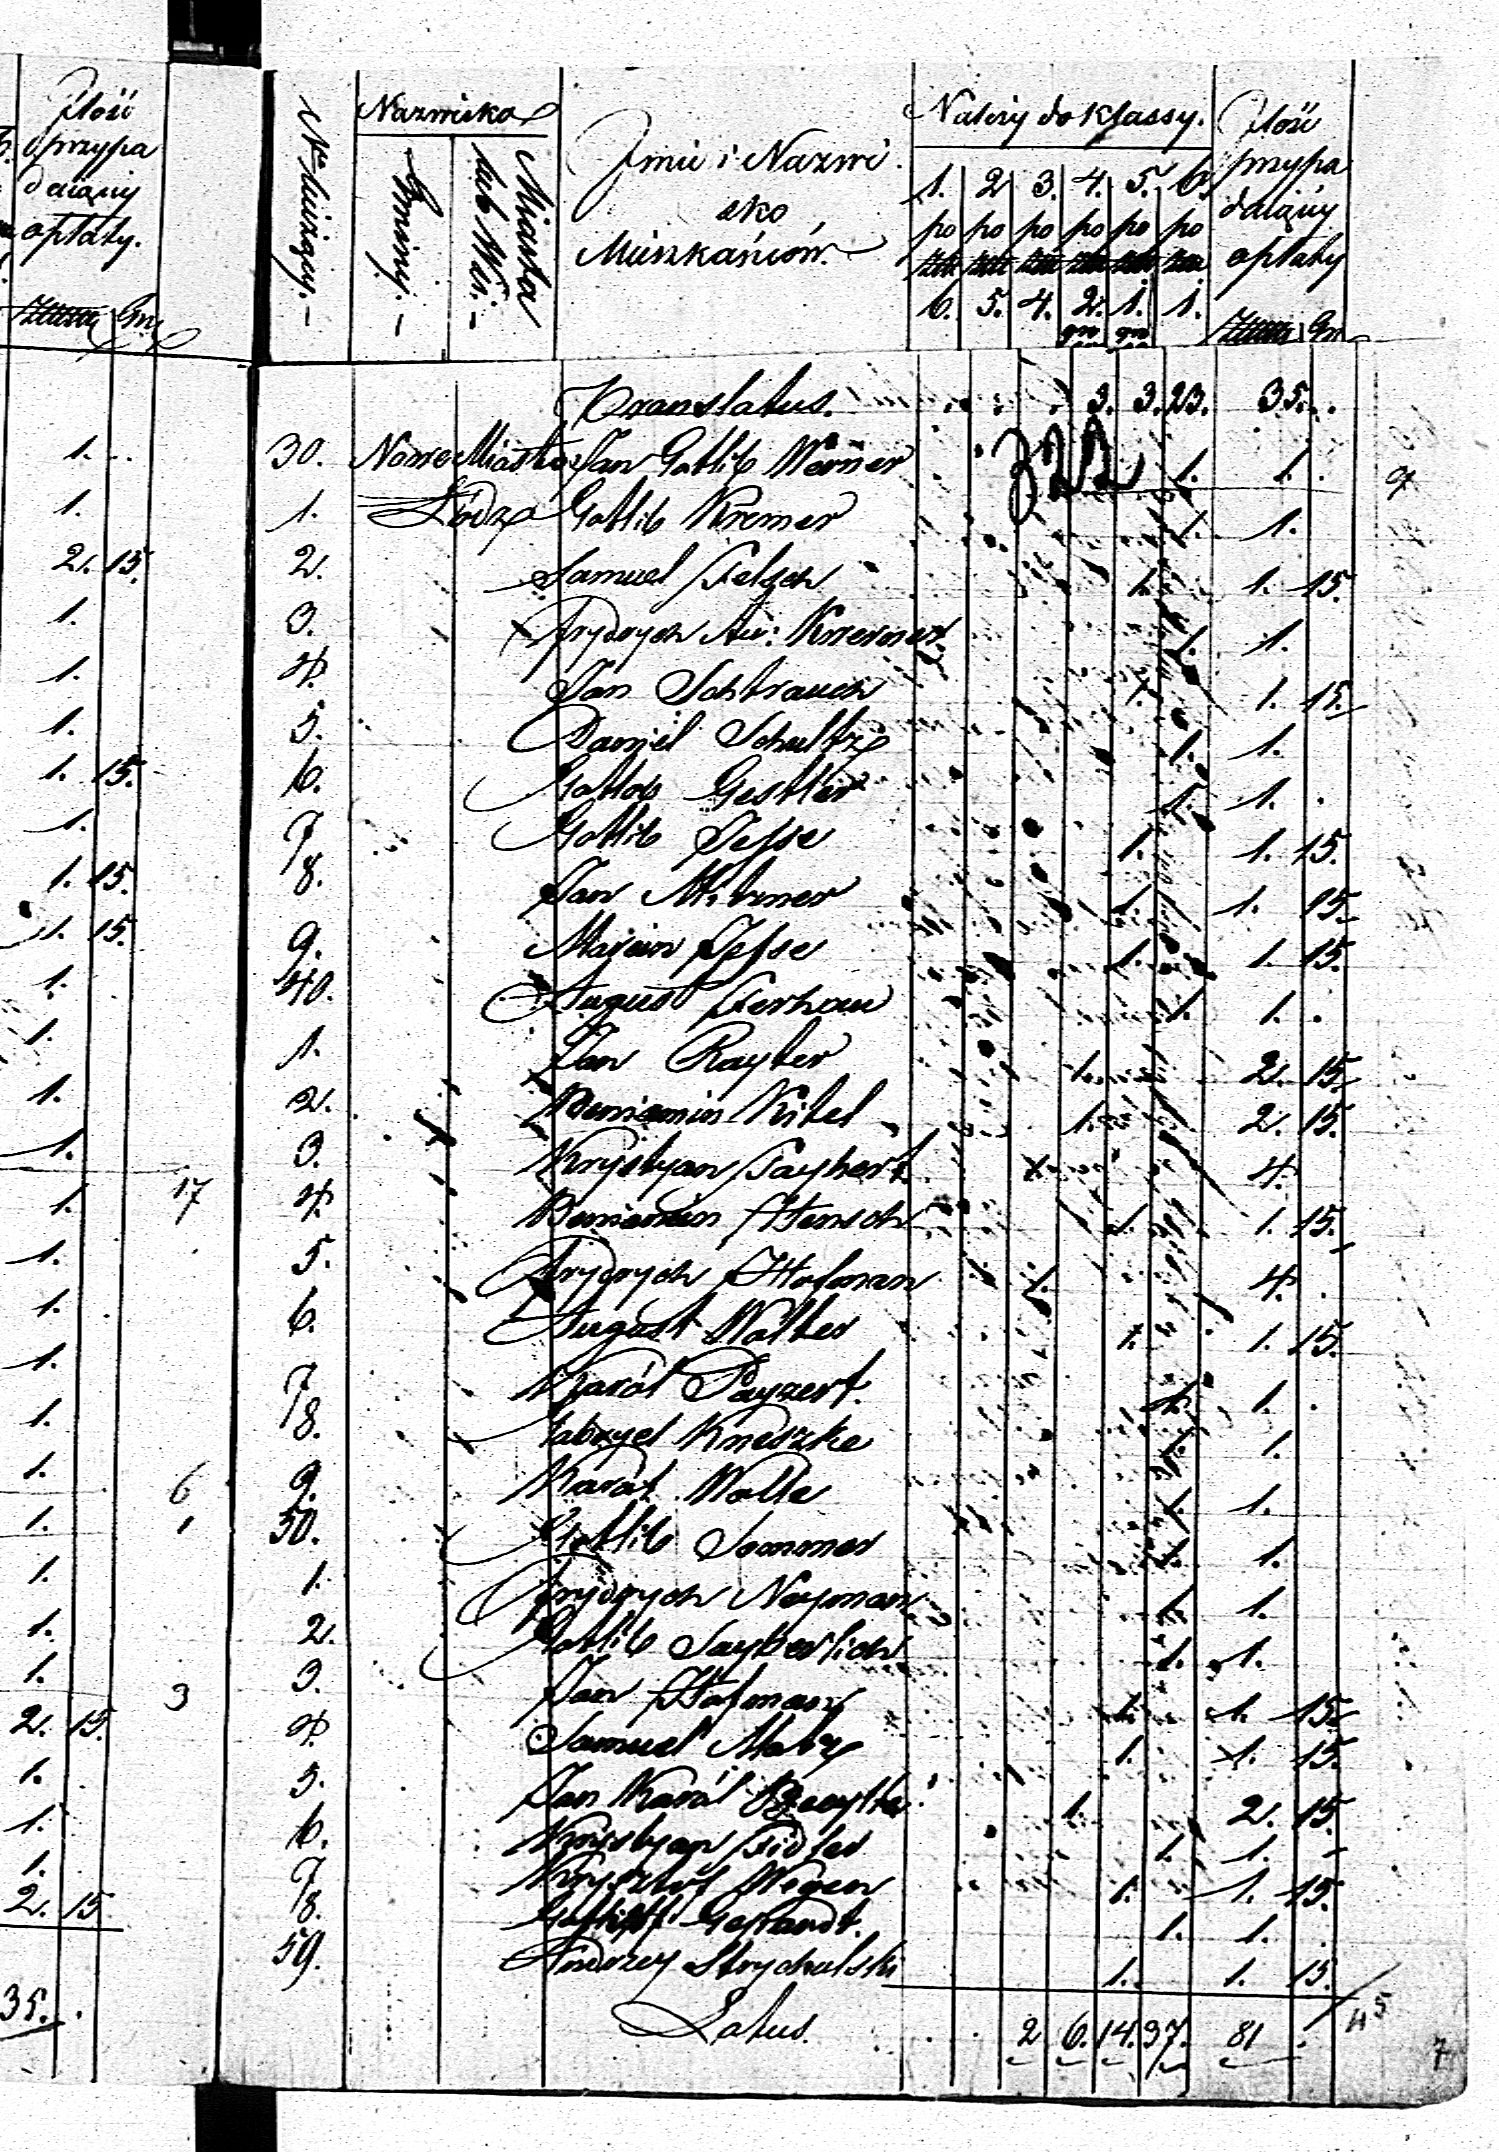 Ilość
przypa
daiący
opłaty.
Gr.
Nro bieżący.
Nazwisko
Gminy.
Miasta
lub Wsi.
Imie i Nazwi
sko
Mieszkańców.
Należy do klassy.
1. 2 3. 4. 5. 6.
po po po po po po
6. 5. 4. 2. 1. 1.
gr gr
Ilość
przypa
daiący
opłaty
Gr.
Translatus. 3. 3. 23. 35.
322
30. Nowe Miasto Jan Gotlib Werner 1. 1.
1. Łódz Gotlib Kremer 1. 1.
2. Samuel 1. 1. 15.
3. Frydrych Au: Kremer 1. 1.
4. Jan Schtrauch 1. 1. 15.
5. Daniel Schultz 1. 1.
6. Gotlob Gestler 1. 1.
7 Gotlib Jesse 1. 1. 15.
8. Jan 1. 1. 15.
9. Marcin Jesse 1. 1. 15.
40. August Ferhau 1. 1.
1. Jan Rayter 1. 2. 15.
2. Beniamin Kitel 1. 2. 15.
3. Krystyan 1. 4.
4. Beniamin Hensch 1. 1. 15.
5. Frydrych Hofman 1. 4.
6. August Walter 1. 1. 15.
7 Karól Payzert. 1. 1.
8. Gabryel Kneszke 1. 1.
9. Karól Wolle 1. 1.
50. Gotlib Sommer 1. 1.
1. Frydrych Neyman 1. 1.
2. Gotlib Sayberlich 1. 1.
3. Jan Hofman 1. 1. 15.
4. Samuel Matz 1. 1. 15.
5. Jan Karól 1. 2. 15.
6. Krystyan Fidler 1. 1.
7 Krysztof Wegen 1. 1. 15.
8. 1. 1.
59. Andrzey Strychalski 1. 1. 15.
Latus. 2 6. 14. 37. 81
45
7
9
1.
1.
2. 15.
1.
1.
1.
1. 15.
1.
1. 15.
1. 15.
1.
1.
1.
1.
1. 17
1.
1.
1.
1.
1. 6
1. 1
1.
1.
1. 3
2. 15.
1.
1.
1.
2. 15.
35.